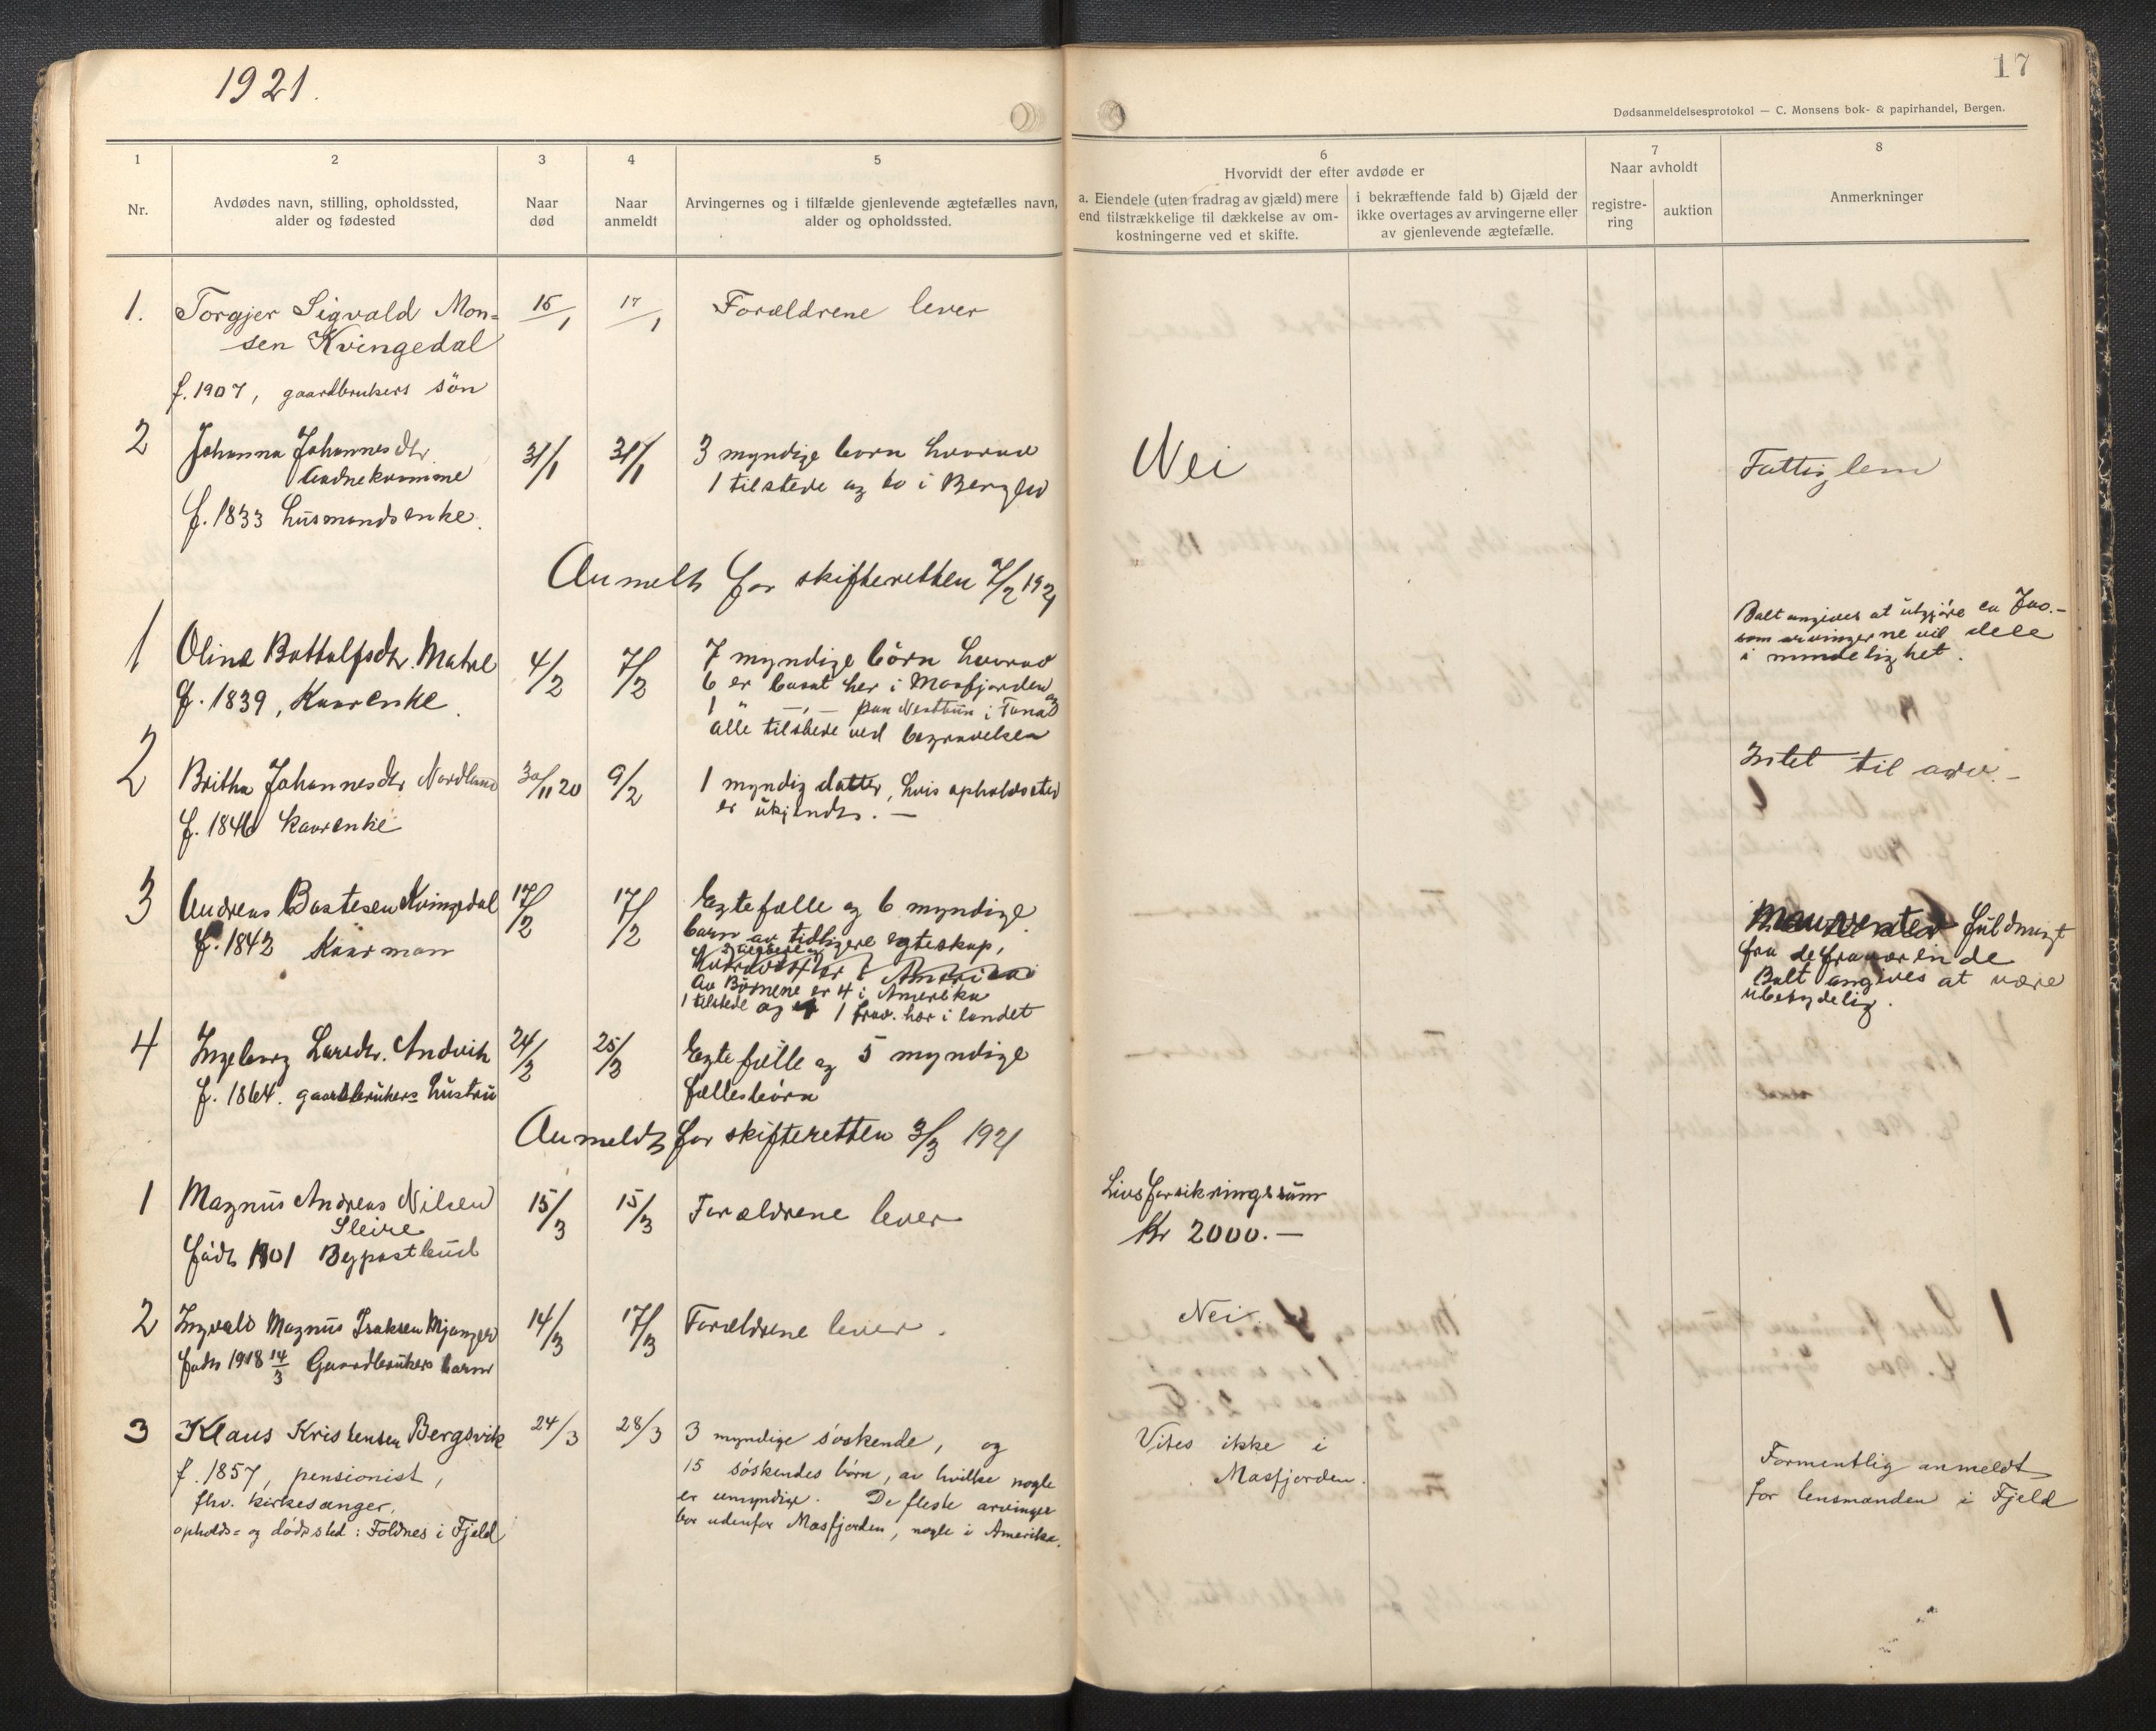 1921.
17
Dødsanmeldelsesprotokol — C. Monsens bok- & papirhandel, Bergen.
1
Nr.
2
Avdødes navn, stilling, opholdssted,
alder og fødested
3
Naar
død
4
Naar
anmeldt
5
Arvingernes og i tilfælde gjenlevende ægtefælles navn,
alder og opholdssted.
6
Hvorvidt der efter avdøde er
a. Eiendele (uten fradrag av gjæld) mere
end tilstrækkelige til dækkelse av om-
kostningerne ved et skifte.
i bekræftende fald b) Gjæld der
ikke overtages av arvingerne eller
av gjenlevende ægtefælle.
7
Naar avholdt
registre-
ring
auktion
8
Anmerkninger
1. Torgjer Sigvald Mon= 15/1 17/1 Forældrene lever
sen Kvingedal
f. 1907, gaardbrukers sön
2 Johanna Johannesdtr. 31/1 31/1 3 myndige børn hvorav Nei Fattiglem
f. 1833 husmandsenke. 1 tilstede og to i Bergen
Anmelt for skifteretten 7/2 1921
1 Olina Bottolfsdtr. Matre 4/2 7/2 7 myndige børn hvorav
f. 1839, Kaarenke 6 er bosat her i Masfjorden og
1 " —,— paa Nesttun i Fana
alle tilstede ved begravelsen
Boet angives at utgjöre ca
som arvingerne vil dele
i mindelighet.
2 Britha Johannesdtr Nordland 30/11 20 9/2 1 myndig datter, hvis opholdssted
f. 1846 kaarenke er ukjendt. —
Intet til arv. —
3 Andreas Bastesen Kvingedal 17/2 17/2 Egtefælle og 6 myndige
f. 1842 Kaarman barn av tidligere egteskap,
Av Börnene er 4 i Amerika
1 tilstede og 1 frav. her i landet
fuldmagt
fra de fraværende
Boet angives at være
ubetydelig.
4 Ingeborg Larsdtr. Andvik 24/2 25/2 Egtefælle og 5 myndige
f. 1864. gaardbrukers hustru fællesbörn
Anmeldt for skifteretten 3/3 1921
1 Magnus Andreas Nilsen 15/3 15/3 Forældrene lever
Sleire
född 1901 Bypostbud
Livsforsikringssum
Kr 2000. —
2 Ingvald Magnus Isaksen Mjanger 14/3 17/3 Forældrene lever. Nei.
född 1918 14/3 Gaardbrukers barn
3 Klaus Kristensen Bergsvik 24/3 28/3 3 myndige söskende, og
f. 1857, pensionist, 15 söskendes börn, av hvilke nogle
fhv. kirkesanger. er umyndige. De fleste arvinger
opholds= og dödssted: Foldnes i Fjeld bor udenfor Masfjorden, nogle i Amerika.
Vites ikke i
Masfjorden.
Formentlig anmeldt
for lensmanden i Fjeld